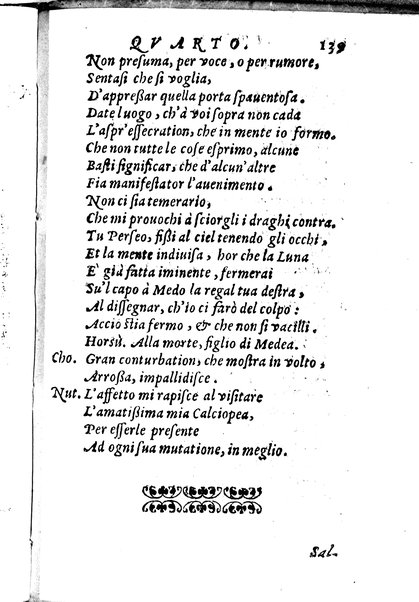 QVARTO. 139
Non preſuma, per voce, o per rumore,
Sentaſi che ſi voglia,
D'appreßar quella porta ſpauentoſa.
Date luogo, ch'à voi ſopra non cada
L'aſpr'eſſecration, che in mente io formo.
Che non tutte le coſe eſprimo, alcune
Baſti ſignificar, che d'alcun'altre
Fia manifeſtator l'auenimento.
Non ci ſia temerario,
Che mi prouochi à ſciorgli i draghi contra.
Tu Perſeo, fiſſi al ciel tenendo gli occhi,
Et la mente indiuiſa, hor che la Luna
E' già fatta iminente, fermerai
Su'l capo à Medo la regal tua deſtra,
Al diſſegnar, ch'io ci farò del colpo:
Accio ſtia fermo, & che non ſi vacilli.
Horsù. Alla morte, figlio di Medea.
Cho. Gran conturbation, che moſtra in volto,
Arroßa, impallidiſce.
Nut. L'affetto mi rapiſce al viſitare
L'amatißima mia Calciopea,
Per eſſerle preſente
Ad ogni ſua mutatione, in meglio.
Sal.